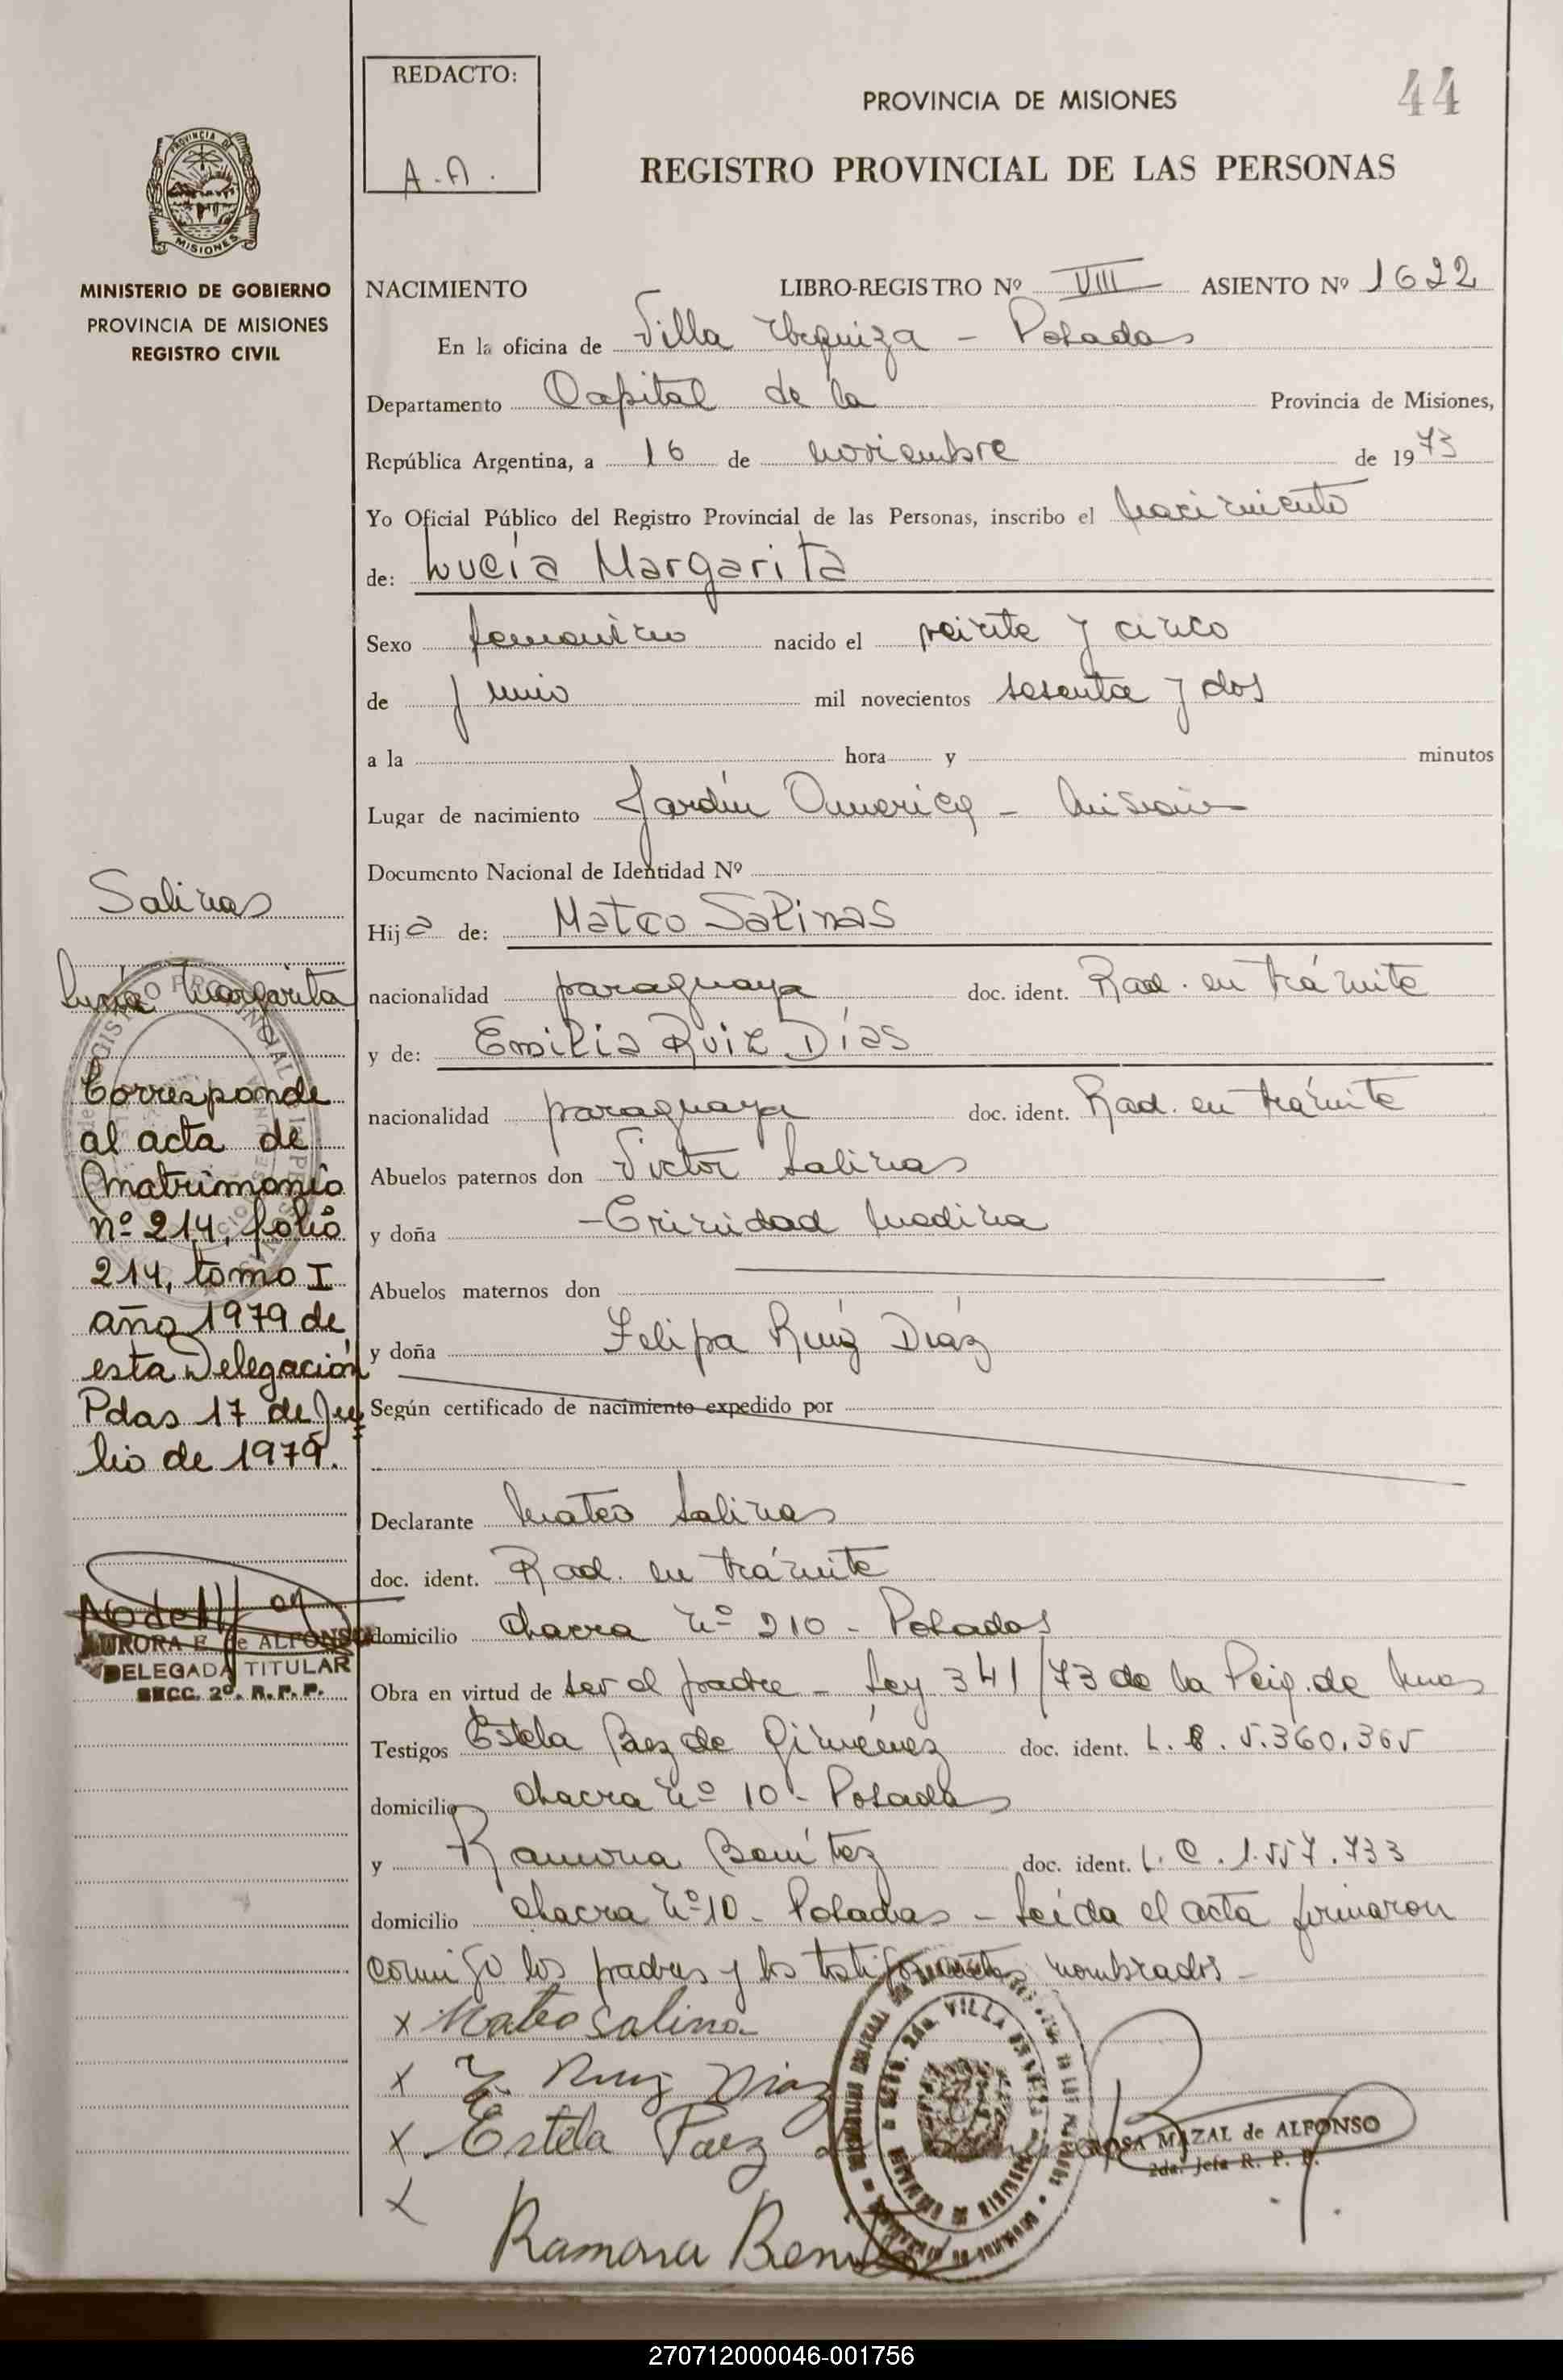 REDACTO:
A. A.
PROVINCIA DE MISIONES
44
REGISTRO PROVINCIAL DE LAS PERSONAS
PROVINCIA DE
MISIONES
MINISTERIO DE GOBIERNO
PROVINCIA DE MISIONES
REGISTRO CIVIL
NACIMIENTO LIBRO-REGISTRO Nº VIII ASIENTO Nº 1622
En la oficina de Villa Urquiza - Posadas
Departamento Capital de la Provincia de Misiones,
República Argentina, a 16 de noviembre de 1973
Yo Oficial Público del Registro Provincial de las Personas, inscribo el nacimiento
de: Lucía Margarita
Sexo femenino nacido el veinte y cinco
de junio mil novecientos sesenta y dos
a la hora y minutos
Lugar de nacimiento Jardín America - Misiones
Documento Nacional de Identidad Nº
Hija de: Mateo Salinas
nacionalidad paraguaya doc. ident. Rad. en trámite
y de: Emilia Ruiz Días
nacionalidad paraguaya doc. ident. Rad. en trámite
Abuelos paternos don Victor Salinas
y doña - Trinidad Medina
Abuelos maternos don
y doña Felipa Ruíz Díaz
Según certificado de nacimiento expedido por
Declarante Mateo Salinas
doc. ident. Rad. en trámite
domicilio chacra nº 210 - Posadas
Obra en virtud de ser el padre - Ley 341/73 de la
Testigos Estela Paez de Giménez doc. ident. L. C. 5.360.365
domicilio chacra nº 10 - Posadas
y Ramona Benítez doc. ident. L. C. 1.557.733
domicilio chacra nº 10 - Posadas - Leída el acta firmaron
conmigo los padres y los testigos nombrados -
x Mateo Salina
x E. Ruiz Diaz
x Estela Paez de
x
Ramona Benitez
ROSA MAZAL de ALFONSO
2da. Jefa R. P. P.
Salinas
Lucía Margarita
Corresponde
al acta de
Matrimonio
nº 214, folio
214, tomo I
año 1979 de
esta Delegación
Pdas 17 de Ju
lio de 1979.
AURORA E. de ALFONSO
DELEGADA TITULAR
SECC. 2º. R. P. P.
270712000046-001756